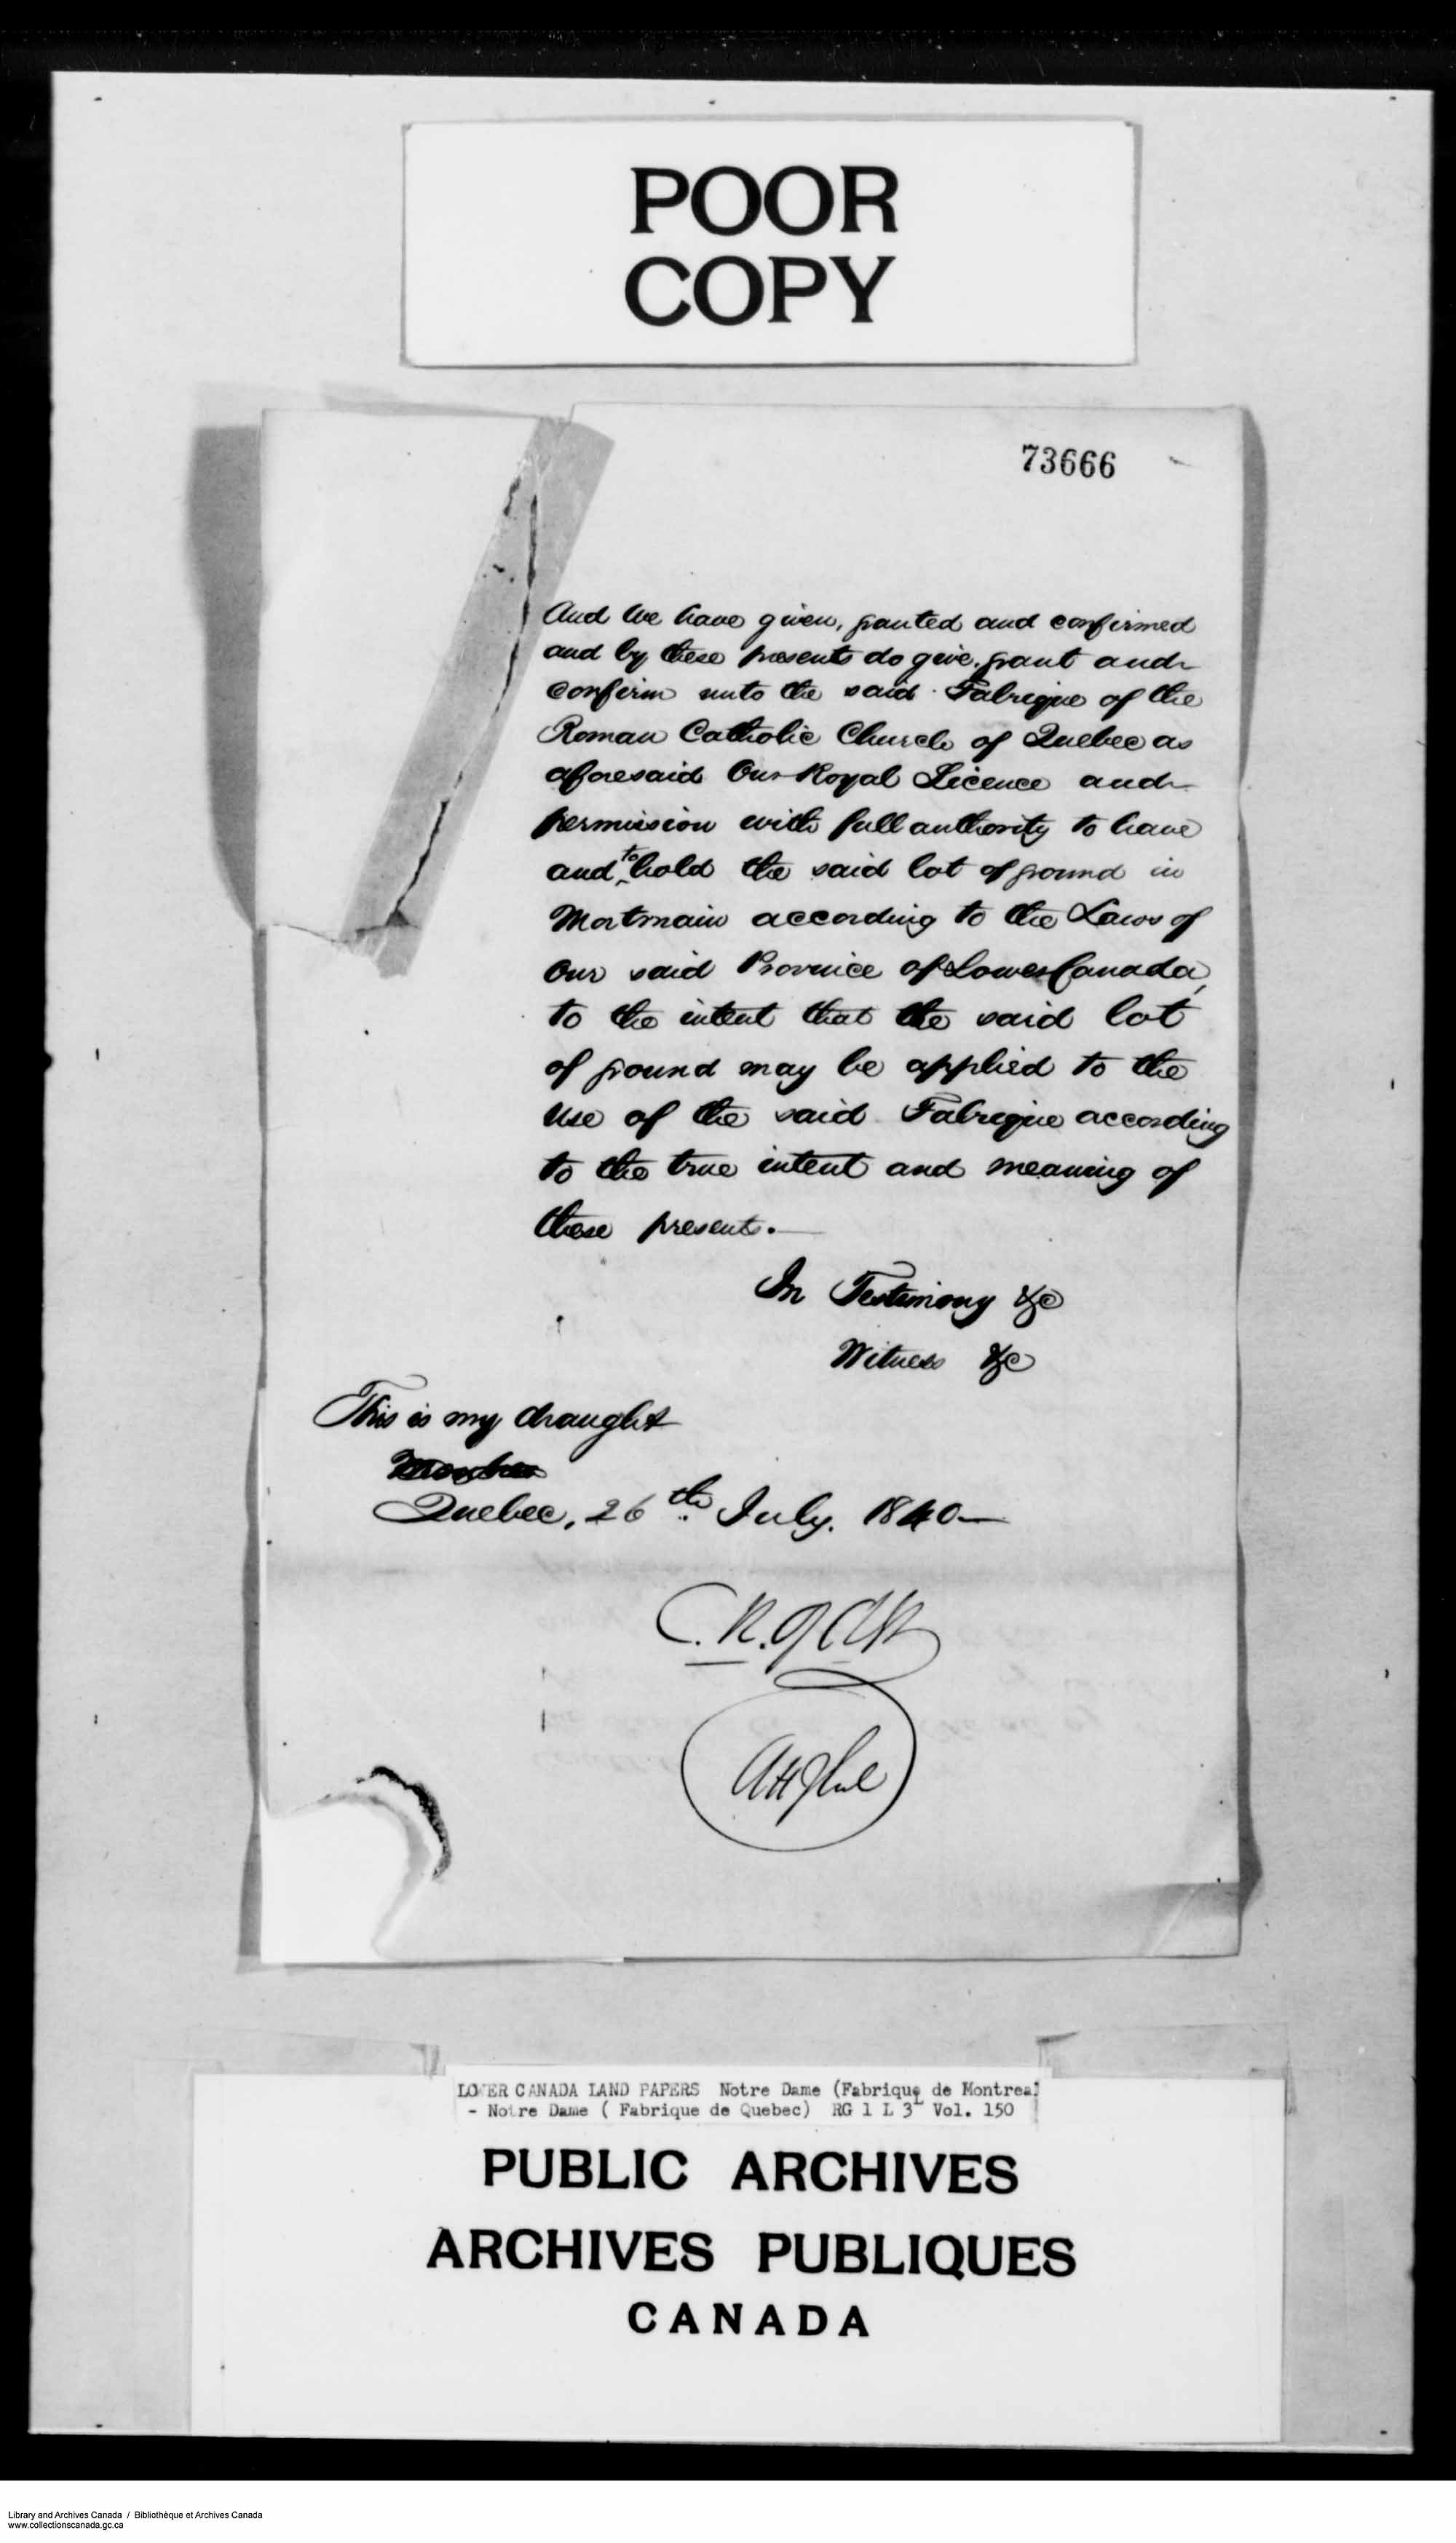 POOR
COPY
73666
And We have given, granted and confirmed
and by these presents do give, grant and
confirm unto the said Fabrique of the
Roman Catholic Church of Quebec as
aforesaid Our Royal Licence and
permission with full authority to have
and to hold the said lot of ground in
Mortmain according to the Laws of
Our said Province of Lower Canada,
to the intent that the said lot
of ground may be applied to the
use of the said Fabrique according
to the true intent and meaning of
these presents.
In Testimony &c
Witness &c
This is my draught
Quebec, 26th July. 1840
C. R. Ogden
LOWER CANADA LAND PAPERS Notre Dame (Fabrique de Montreal
- Notre Dame ( Fabrique de Quebec) RG 1 L 3L Vol. 150
PUBLIC ARCHIVES
ARCHIVES PUBLIQUES
CANADA
Library and Archives Canada / Bibliothèque et Archives Canada
www.collectionscanada.gc.ca